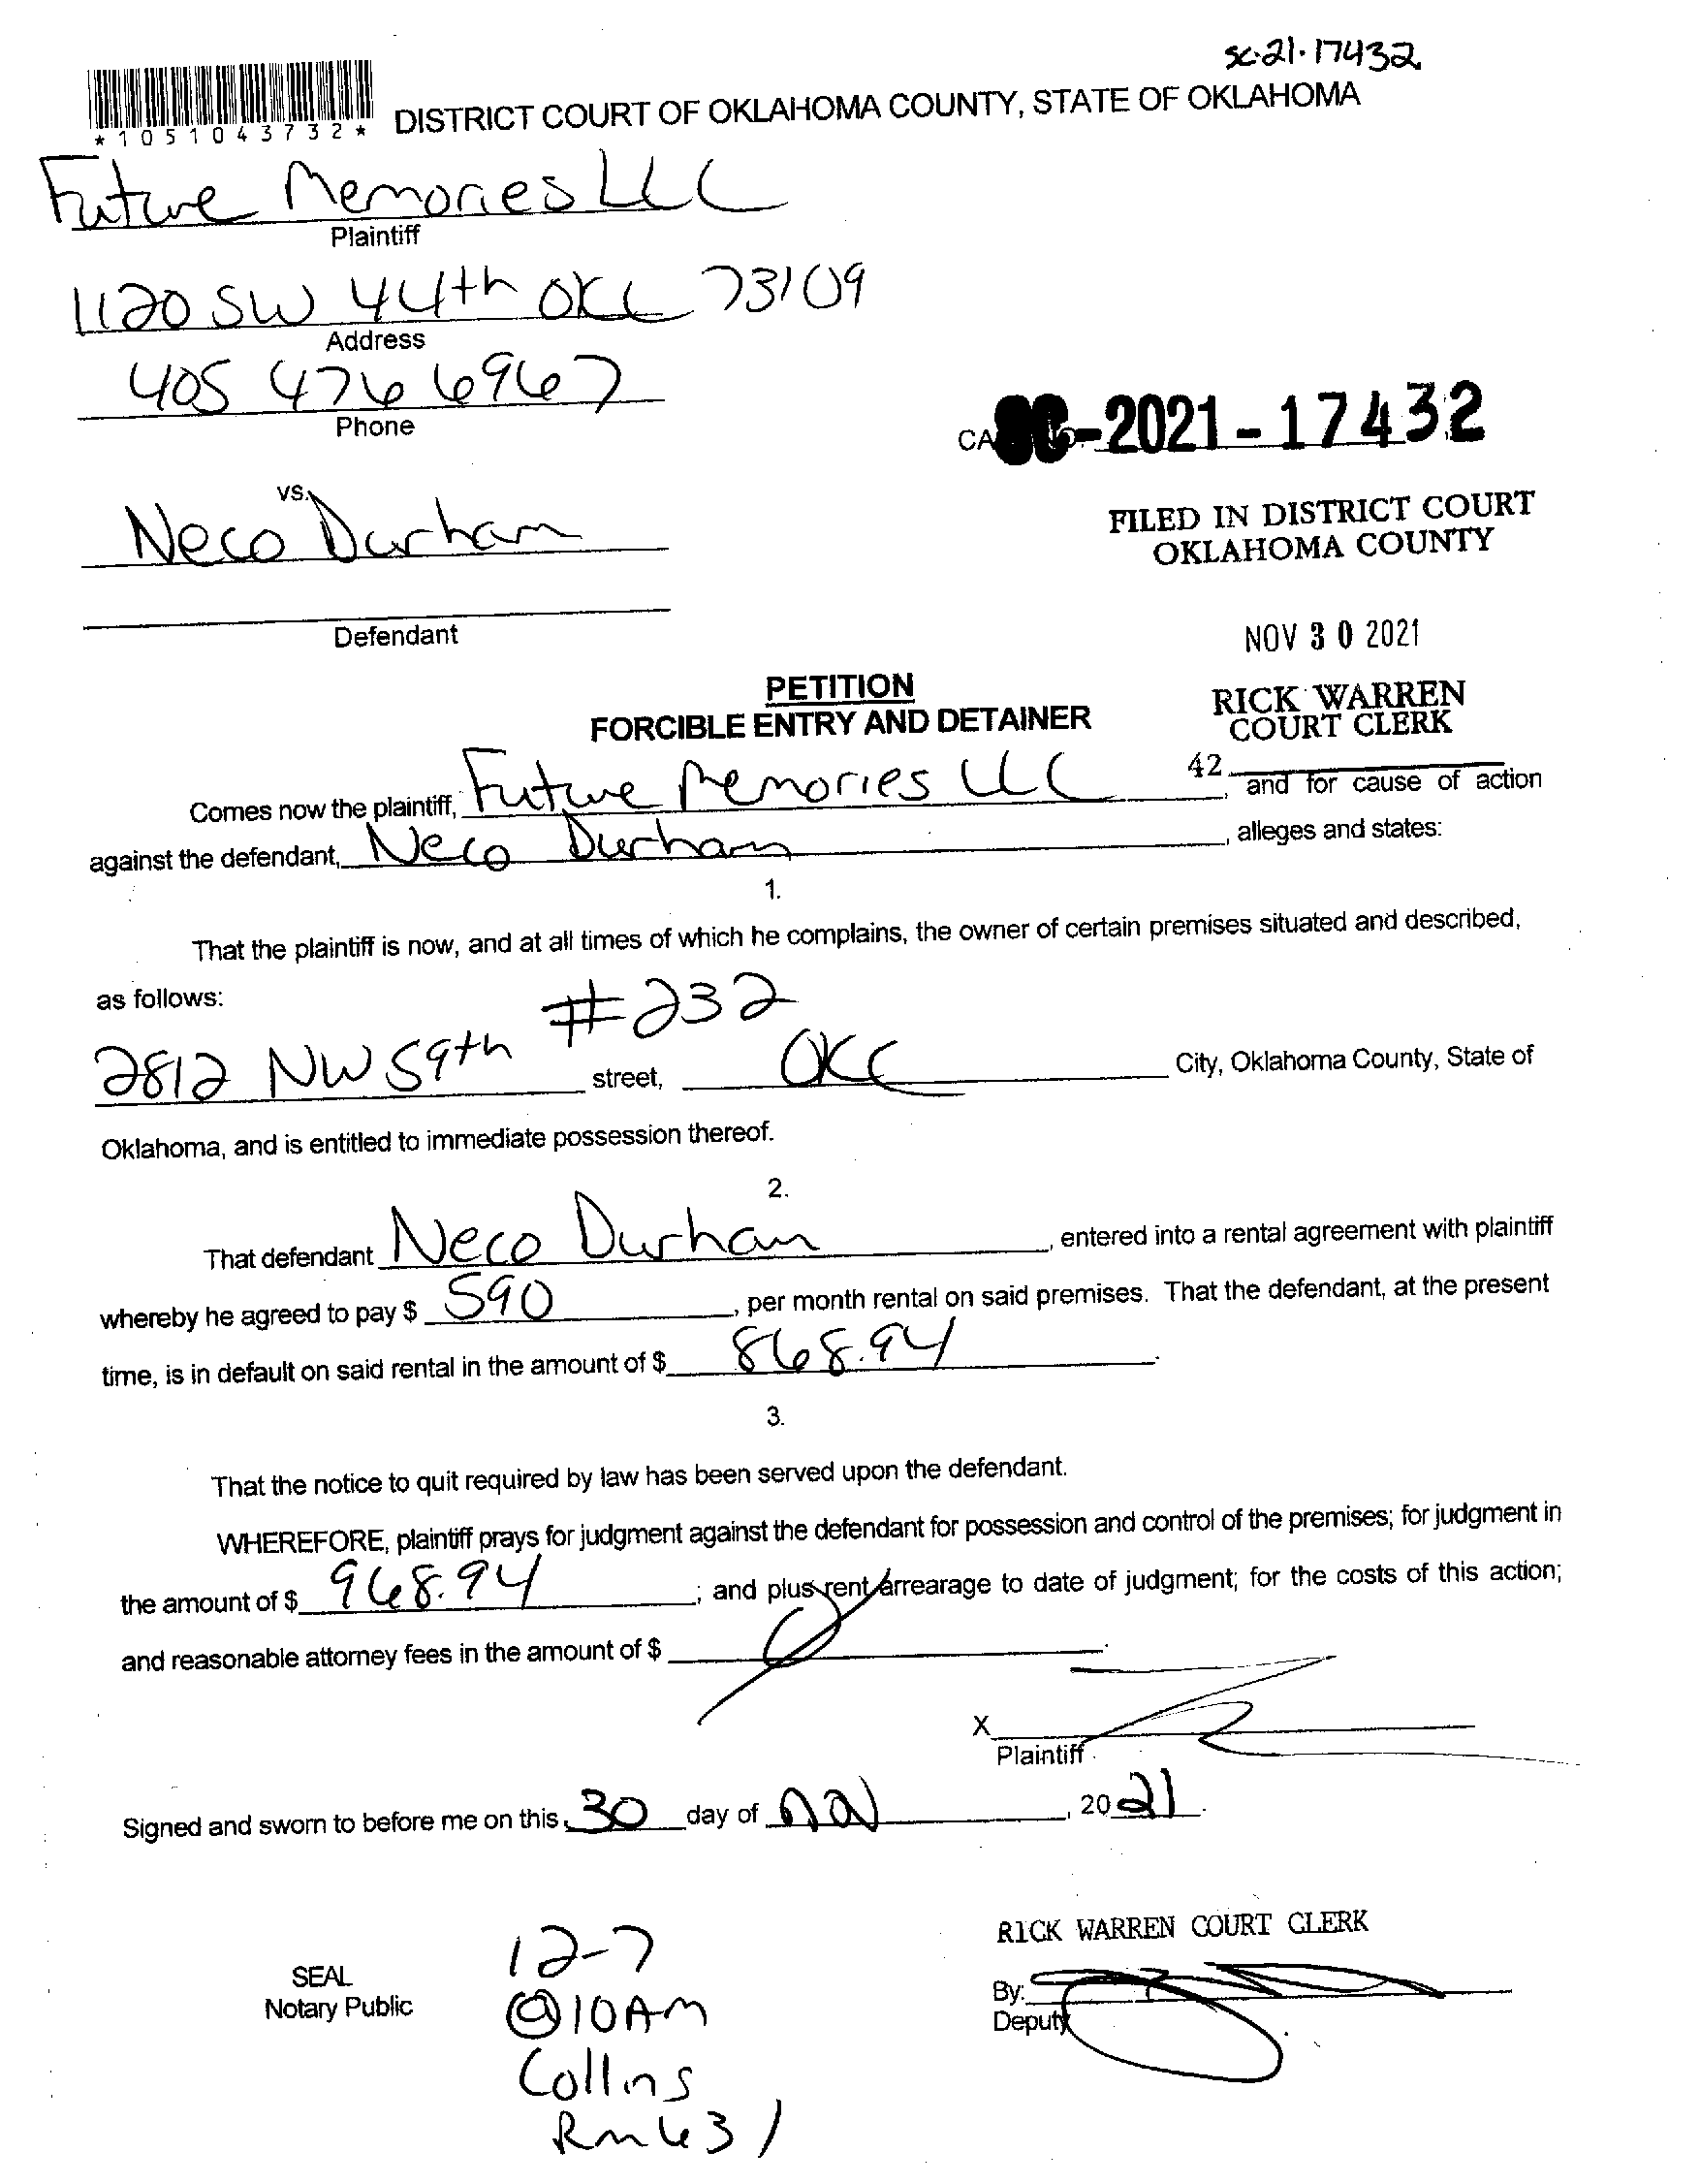 sc-21-17432
*1051043732*
DISTRICT COURT OF OKLAHOMA COUNTY, STATE OF OKLAHOMA
Future Memories LLC
Plaintiff
1120 SW 44th OKC 73109
Address
405 476 6967
Phone
SC-2021-17432
vs.
Neco Durham
FILED IN DISTRICT COURT
OKLAHOMA COUNTY
Defendant
NOV 30 2021
PETITION
FORCIBLE ENTRY AND DETAINER
RICK WARREN
COURT CLERK
42
Comes now the plaintiff, Future Memories LLC, and for cause of action
against the defendant, Neco Durham, alleges and states:
1.
That the plaintiff is now, and at all times of which he complains, the owner of certain premises situated and described,
as follows:
#232
2812 NW 59th street, OKC City, Oklahoma County, State of
Oklahoma, and is entitled to immediate possession thereof.
2.
That defendant Neco Durham, entered into a rental agreement with plaintiff
whereby he agreed to pay $ 590, per month rental on said premises. That the defendant, at the present
time, is in default on said rental in the amount of $ 868.94.
3.
That the notice to quit required by law has been served upon the defendant.
WHEREFORE, plaintiff prays for judgment against the defendant for possession and control of the premises; for judgment in
the amount of $ 968.94; and plus rent arrearage to date of judgment; for the costs of this action;
and reasonable attorney fees in the amount of $
X
Plaintiff
Signed and sworn to before me on this 30 day of nov, 2021.
RICK WARREN COURT CLERK
SEAL
Notary Public
By:
Deputy
12-7
@10AM
Collins
Rm 631